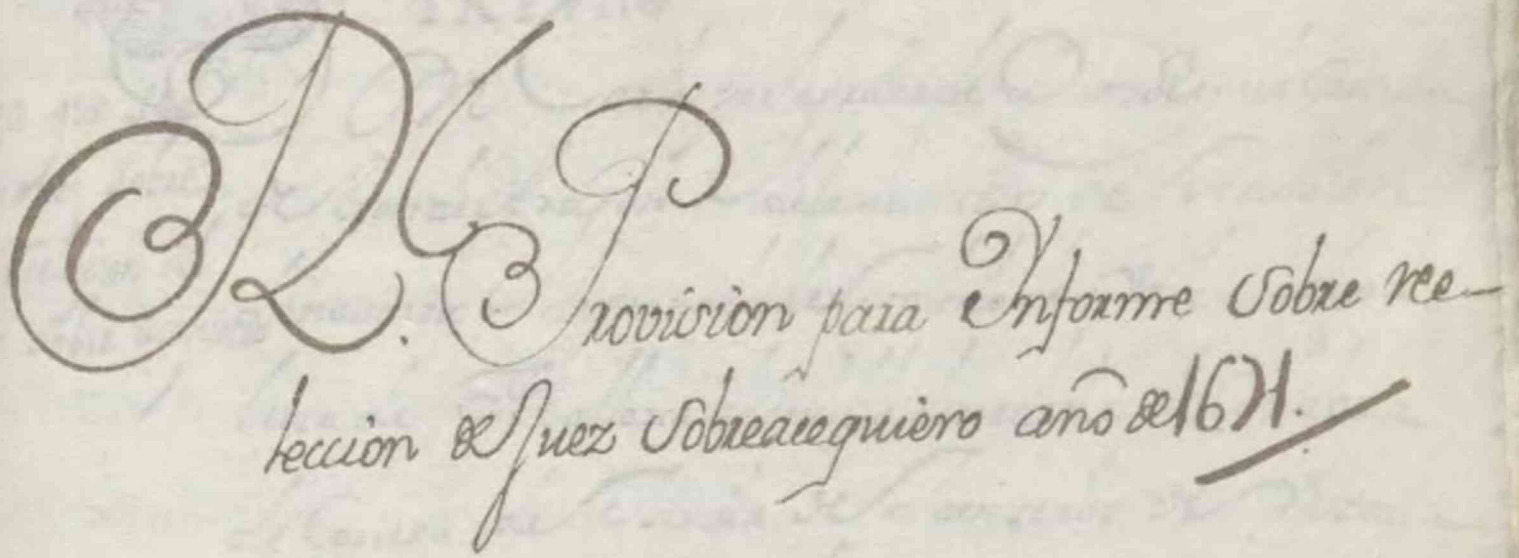 R. Provision para Informe Sobre ree-
leccion de Juez Sobreacequiero año de 1671.